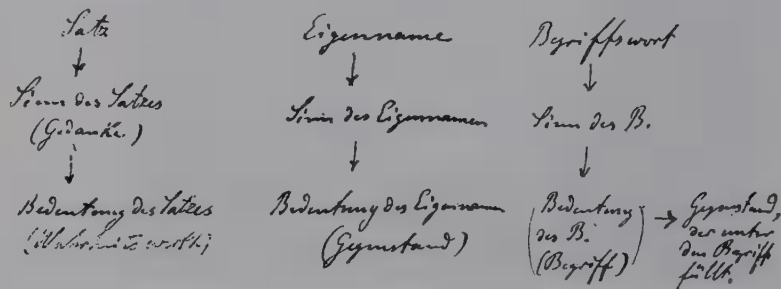 Satz
Sinn des Satzes
(Gedanke)
Bedeutung des Satzes
(Wahrheitswerth)
Eigenname
Sinn des Eigennamen
Bedeutung des Eigennamen
(Gegenstand)
Begriffswort
Sinn des B.
Bedeutung
des B.
(Begriff)
Gegenstand,
der unter
den Begriff
fällt.